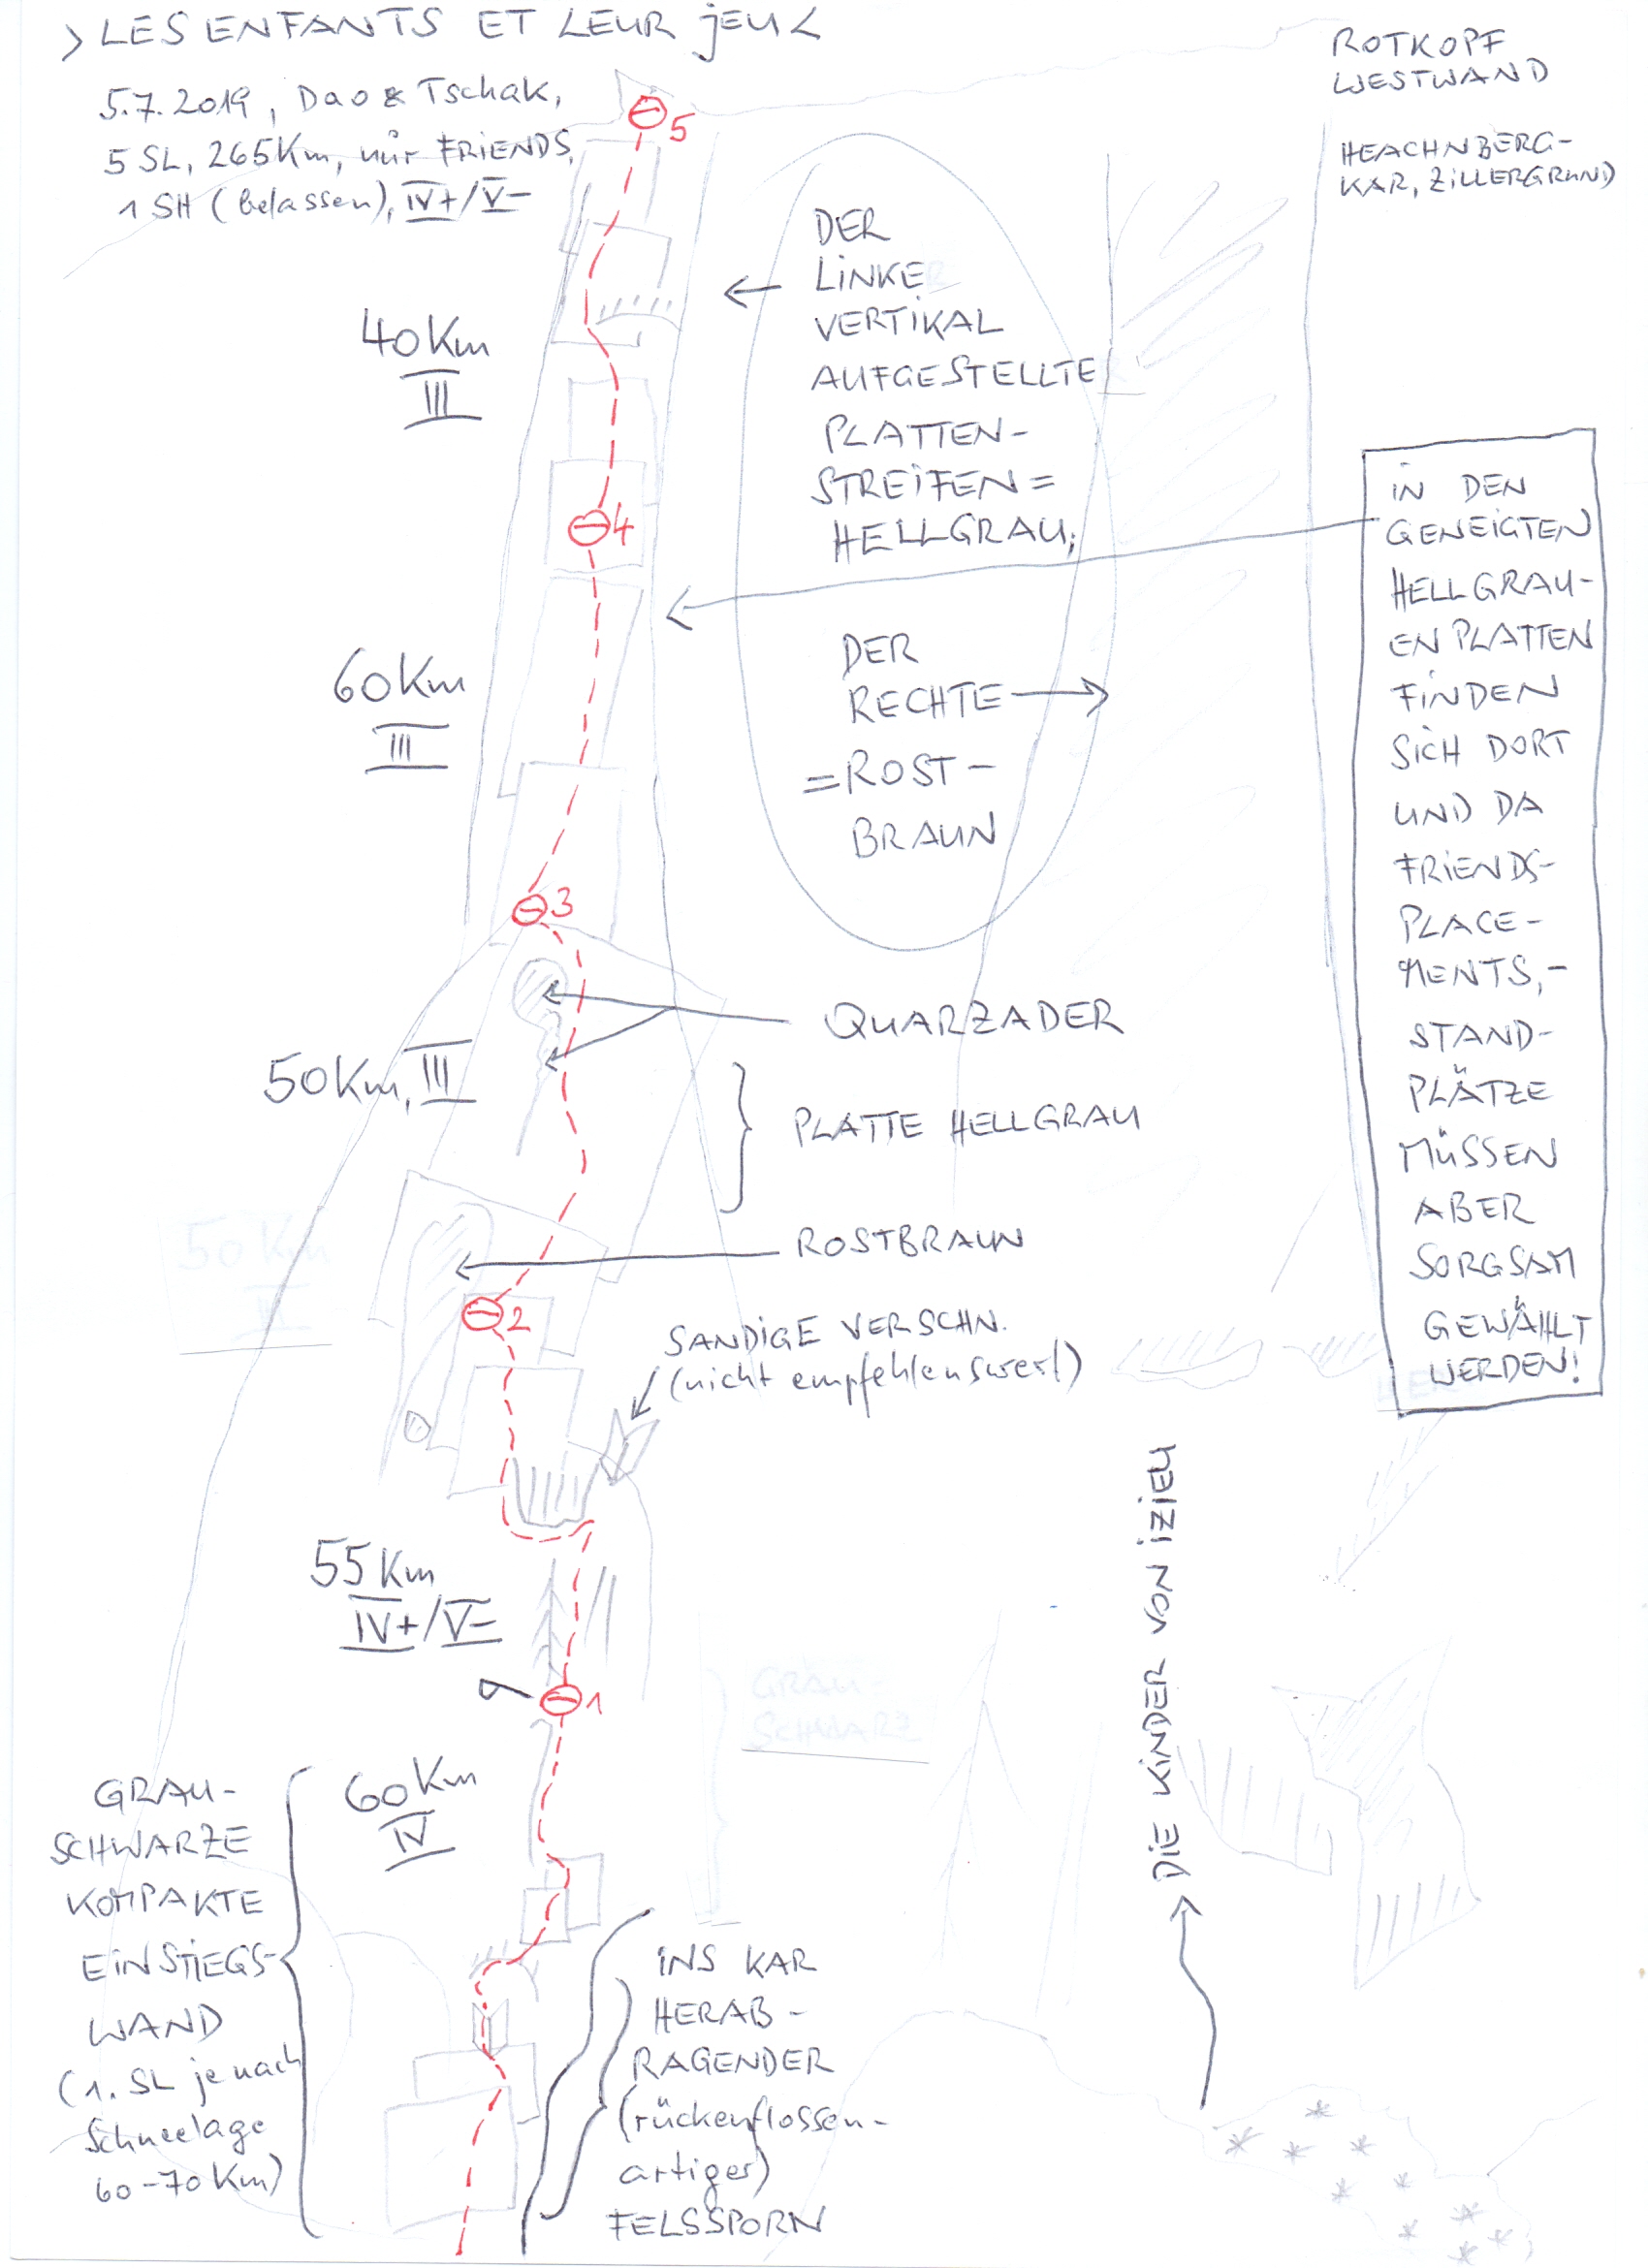 > LES ENFANTS ET LEUR JEU <
5.7.2019, Dao & Tschak,
5 SL, 265 Km, nur FRIENDS,
1 SH (belassen), IV+/V-
ROTKOPF
WESTWAND
HEACHNBERG-
KAR, ZILLERGRUND
5
40 Km
III
DER
LINKE
VERTIKAL
AUFGESTELLTE
PLATTEN-
STREIFEN =
HELLGRAU;
DER
RECHTE
= ROST-
BRAUN
4
60 Km
III
3
IN DEN
GENEIGTEN
HELLGRAU-
EN PLATTEN
FINDEN
SICH DORT
UND DA
FRIENDS-
PLACE-
MENTS,-
STAND-
PLÄTZE
MÜSSEN
ABER
SORGSAM
GEWÄHLT
WERDEN!
QUARZADER
50 Km, III
PLATTE HELLGRAU
ROSTBRAUN
2
SANDIGE VERSCHN.
(nicht empfehlenswert)
55 Km
IV+/V-
1
DIE KINDER VON IZIEU
60 Km
IV
GRAU-
SCHWARZE
KOMPAKTE
EINSTIEGS-
WAND
(1. SL je nach
Schneelage
60-70 Km)
INS KAR
HERAB-
RAGENDER
(rückenflossen-
artiger)
FELSSPORN
50 Km
GRAU-
SCHWARZ